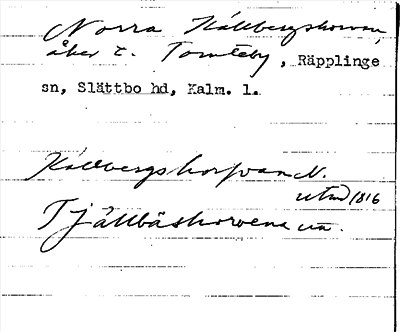 Norra Källbergshorvan,
åker t. Tomteby, Räpplinge
sn, Slättbo hd, Kalm. l.
Källbergshorfvan N.
utmd 1816
Tjällbäshorvena